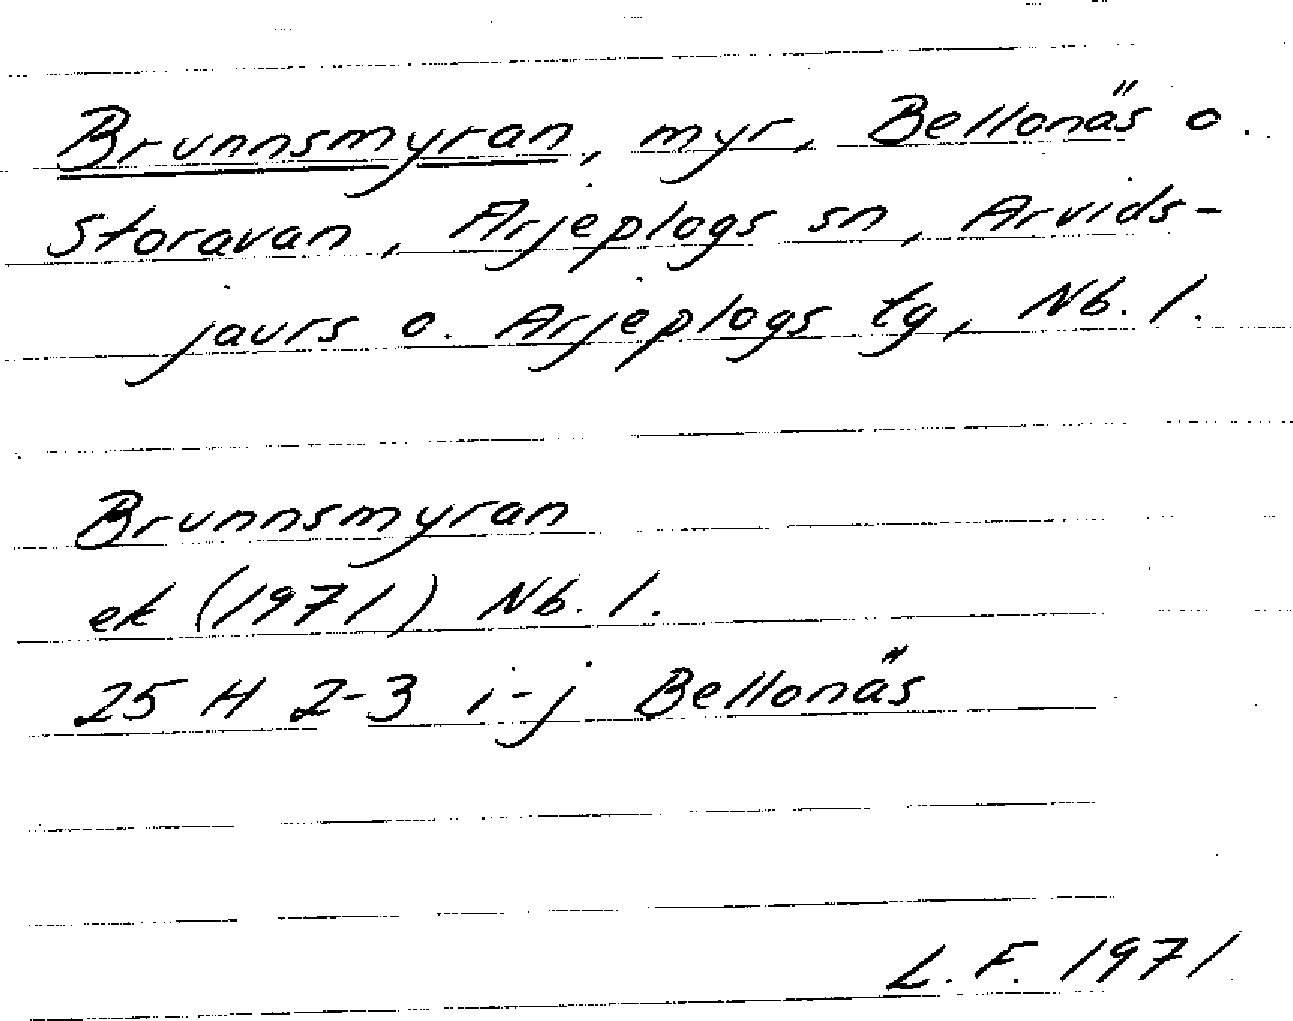 Brunnsmyran, myr, Bellonäs o.
Storavan, Arjeplogs sn, Arvids-
jaurs o. Arjeplogs tg, Nb. l.
Brunnsmyran
ek (1971) Nb. l.
25 H 2-3 i-j Bellonäs
L. F. 1971